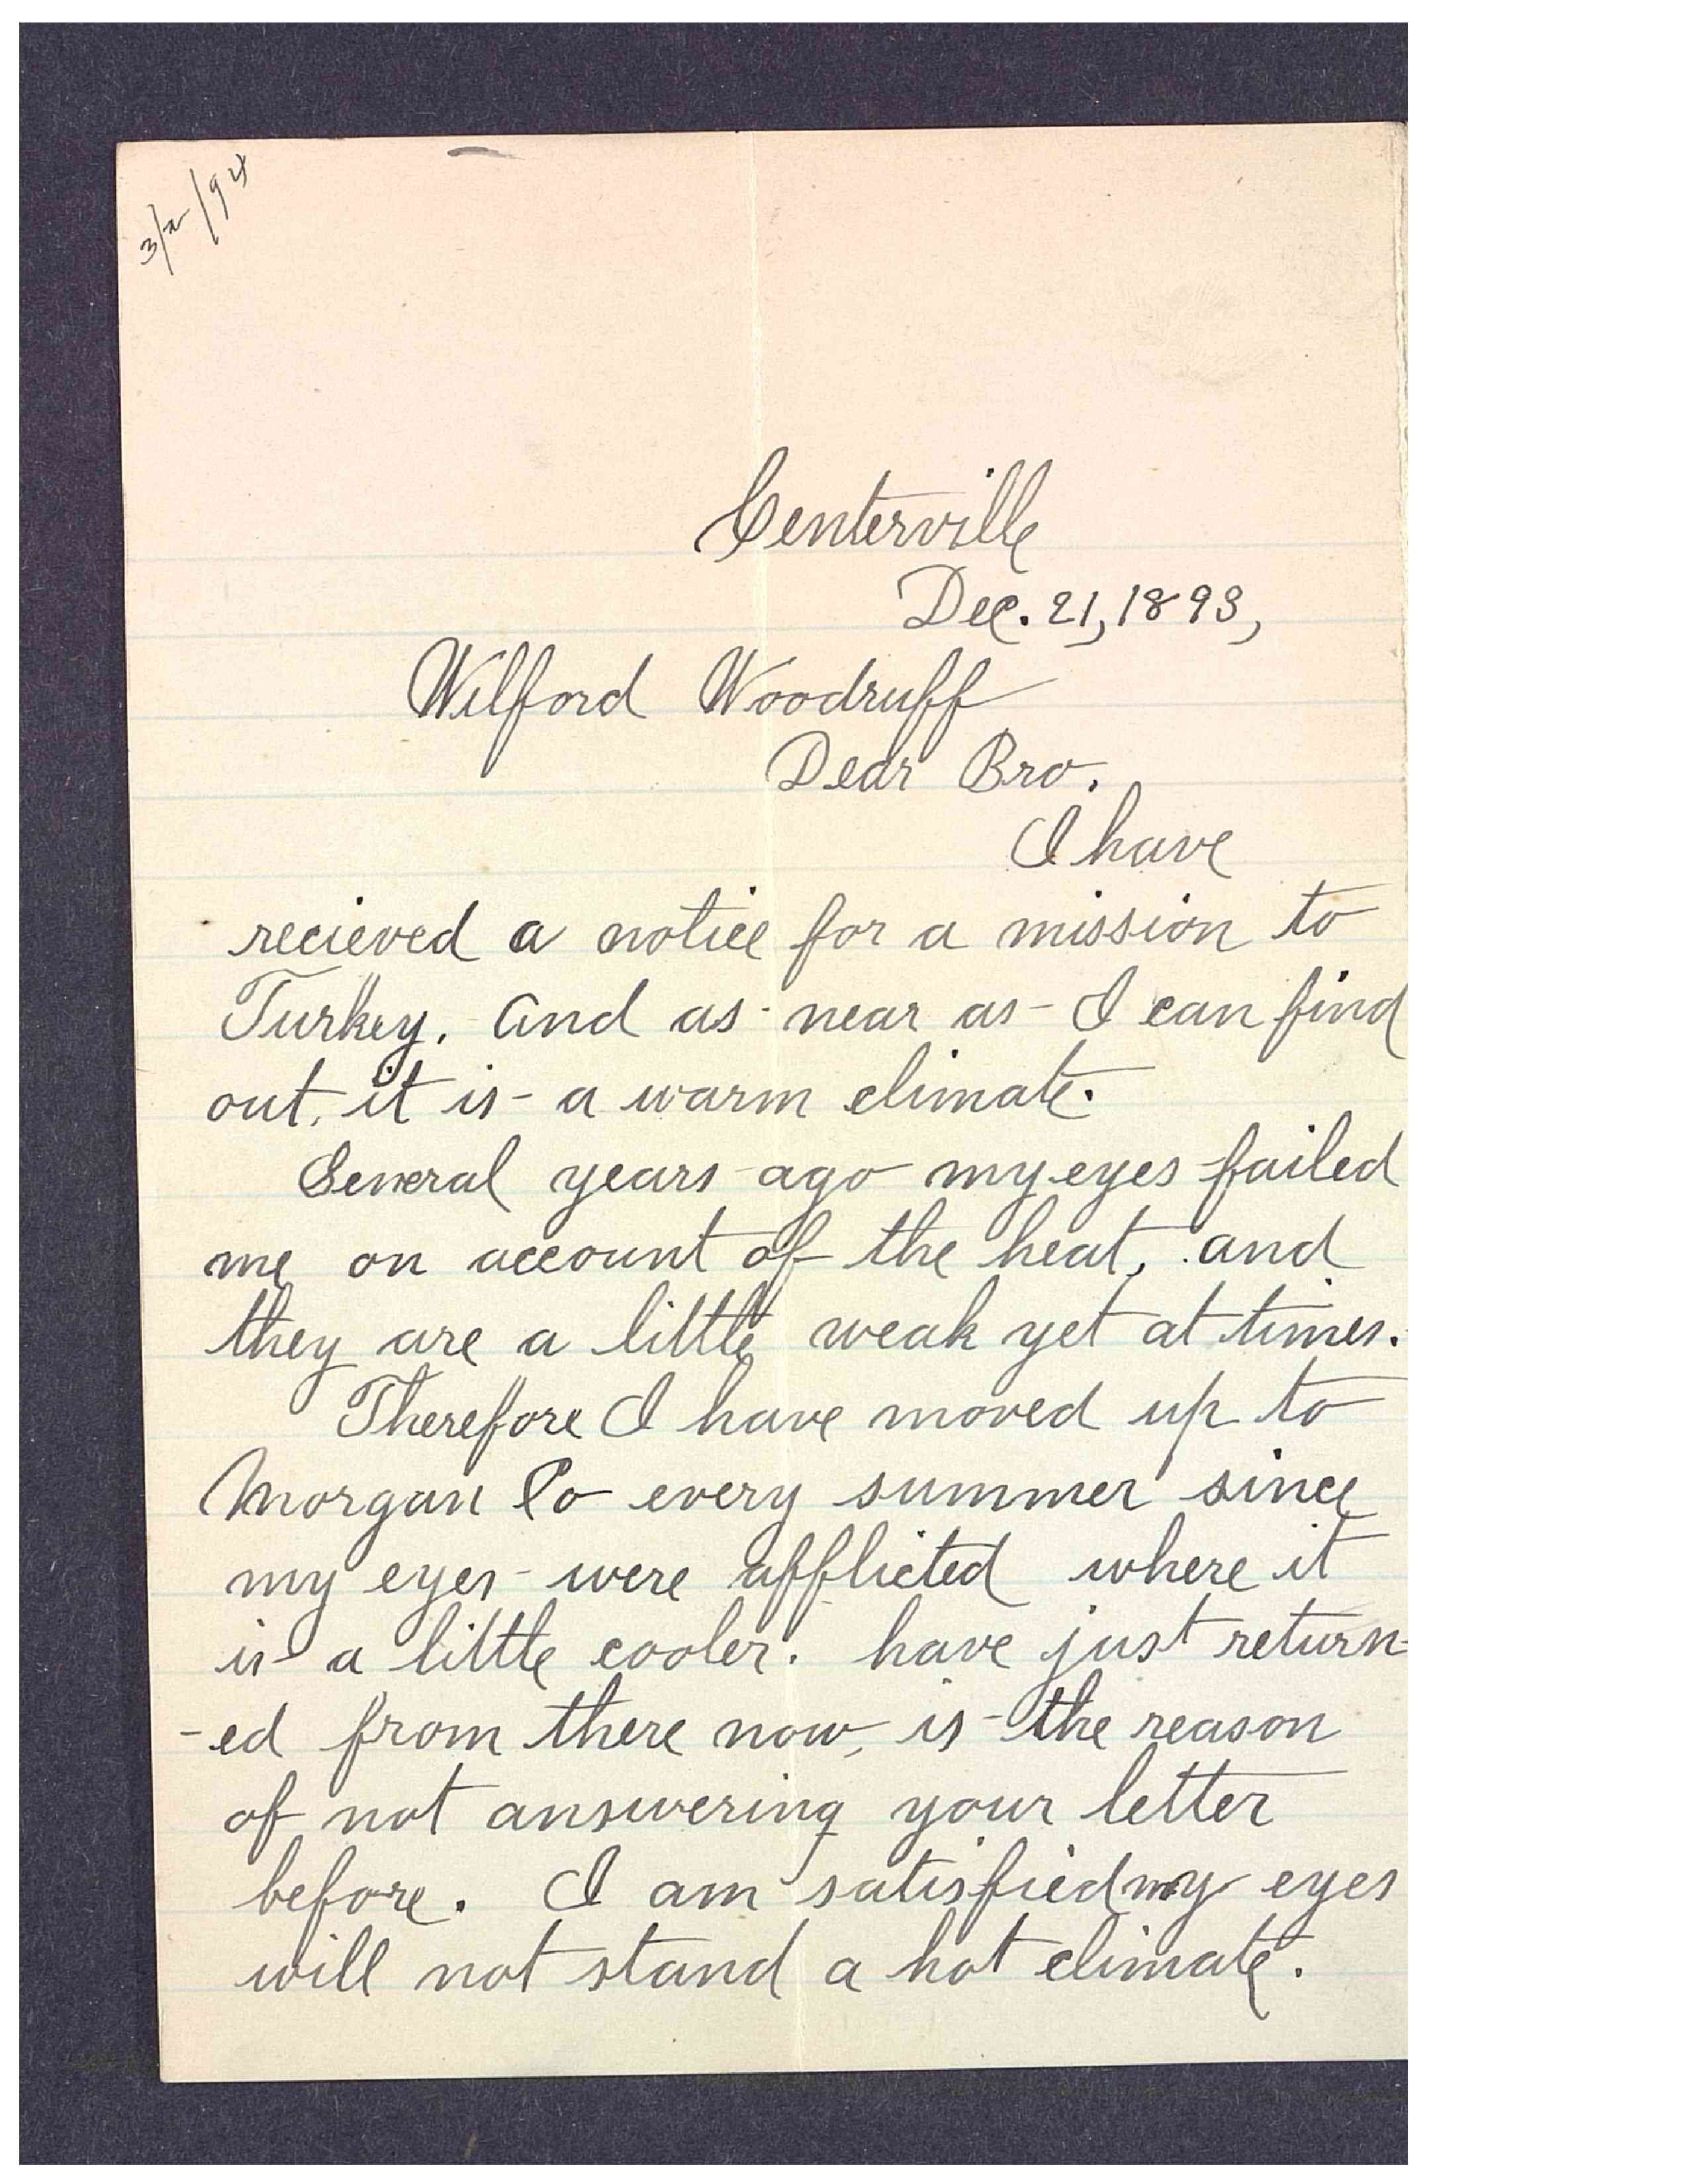 3/2/94
Centerville
Dec. 21, 1893,
Wilford Woodruff
Dear Bro.
I have
recieved a notice for a mission to
Turkey. And as near as I can find
out, it is a warm climate.
Several years ago my eyes failed
me on account of the heat, and
they are a little weak yet at times.
Therefore I have moved up to
Morgan Co every summer since
my eyes were afflicted where it
is a little cooler. have just return-
-ed from there now, is the reason
of not answering your letter
before. I am satisfied my eyes
will not stand a hot climate.